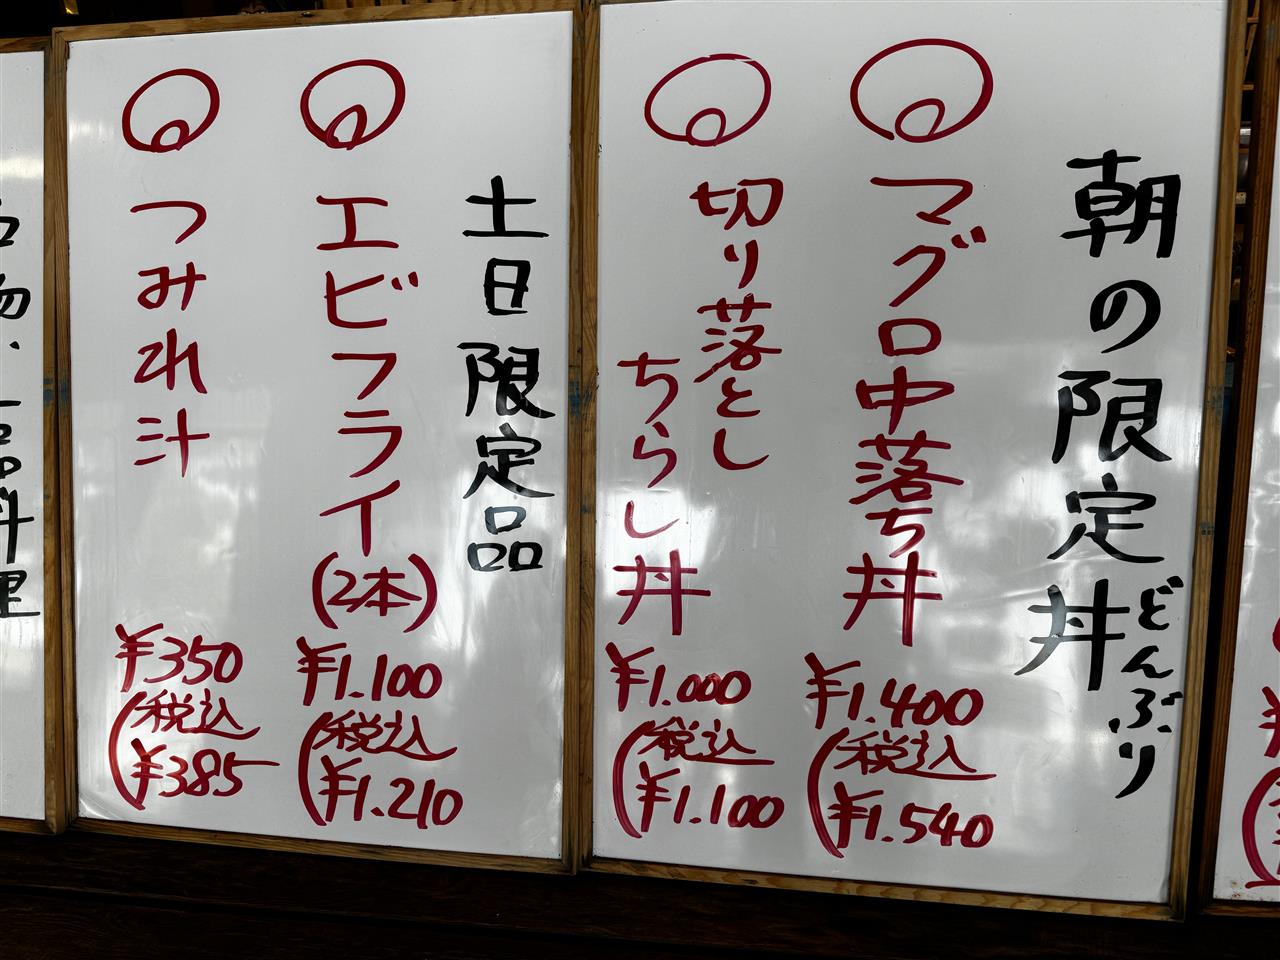 朝の限定丼
どんぶり
マグロ中落ち丼
¥1.400
(税込
¥1.540
切り落とし
ちらし丼
¥1.000
(税込
¥1.100
土日限定品
エビフライ(2本)
¥1.100
(税込
¥1.210
つみれ汁
¥350
(税込
¥385
料理